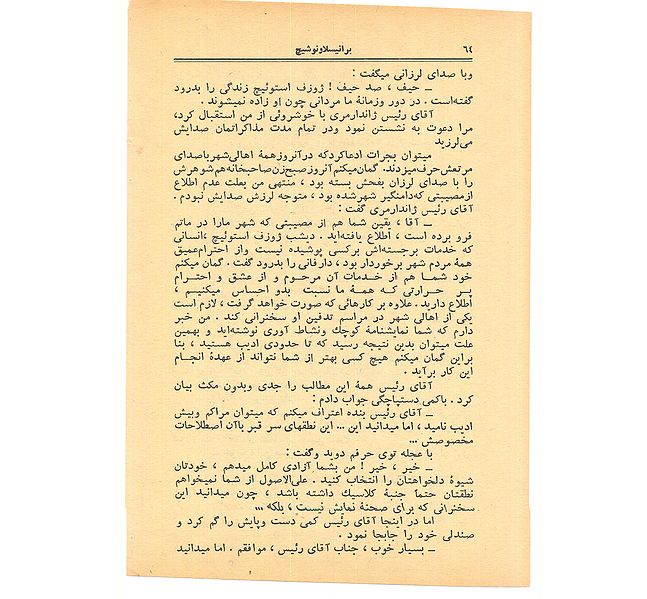 ۶۴
برانیسلاو نوشیچ
وبا صدای لرزانی میگفت :
ـ حیف ، صد حیف ! ژوزف استوئیچ زندگی را بدرود
گفته‌است . در دور وزمانهٔ ما مردانی چون او زاده نمیشوند .
آقای رئیس ژاندارمری با خوشروئی از من استقبال کرد،
مرا دعوت به نشستن نمود ودر تمام مدت مذاکراتمان صدایش
می‌لرزید
میتوان بجرات ادعا کرد که در آنروز همهٔ اهالی شهر با صدای
مرتعش حرف میزدند. گمان میکنم آنروز صبح زن صاحبخانه هم شوهرش
را با صدای لرزان بفحش بسته بود ، منتهی من بعلت عدم اطلاع
از مصیبتی که دامنگیر شهر شده بود ، متوجه لرزش صدایش نبودم .
آقای رئیس ژاندارمری گفت :
ـ آقا ، یقین شما هم از مصیبتی که شهر مارا در ماتم
فرو برده است ، اطلاع یافته‌اید . دیشب ژوزف استوئیچ ،انسانی
که خدمات برجسته‌اش برکسی پوشیده نیست واز احترام عمیق
همهٔ مردم شهر برخوردار بود ، دارفانی را بدرود گفت . گمان میکنم
خود شما هم از خدمات آن مرحوم و از عشق و احترام
پر حرارتی که همهٔ ما نسبت بدو احساس میکنیم ،
اطلاع دارید . علاوه بر کارهائی که صورت خواهد گرفت ، لازم است
یکی از اهالی شهر در مراسم تدفین او سخنرانی کند . من خبر
دارم که شما نمایشنامهٔ کوچك ونشاط آوری نوشته‌اید و بهمین
علت میتوان بدین نتیجه رسید که تا حدودی ادیب هستید ، بنا
براین گمان میکنم هیچ کسی بهتر از شما نتواند از عهدهٔ انجام
این کار برآید .
آقای رئیس همهٔ این مطالب را جدی وبدون مکث بیان
کرد . باکمی دستپاچگی جواب دادم :
ـ آقای رئیس بنده اعتراف میکنم که میتوان مراکم وبیش
ادیب نامید ، اما میدانید این ... این نطقهای سر قبر باآن اصطلاحات
مخصوصش ...
با عجله توی حرفم دوید وگفت :
ـ خیر ، خیر ! من بشما آزادی کامل میدهم ، خودتان
شیوهٔ دلخواهتان را انتخاب کنید . علی‌الاصول از شما نمیخواهم
نطقتان حتماً جنبهٔ کلاسیك داشته باشد ، چون میدانید این
سخنرانی که برای صحنهٔ نمایش نیست ، بلکه ...
اما در اینجا آقای رئیس کمی دست وپایش را گم کرد و
صندلی خود را جابجا نمود .
ـ بسیار خوب ، جناب آقای رئیس ، موافقم . اما میدانید